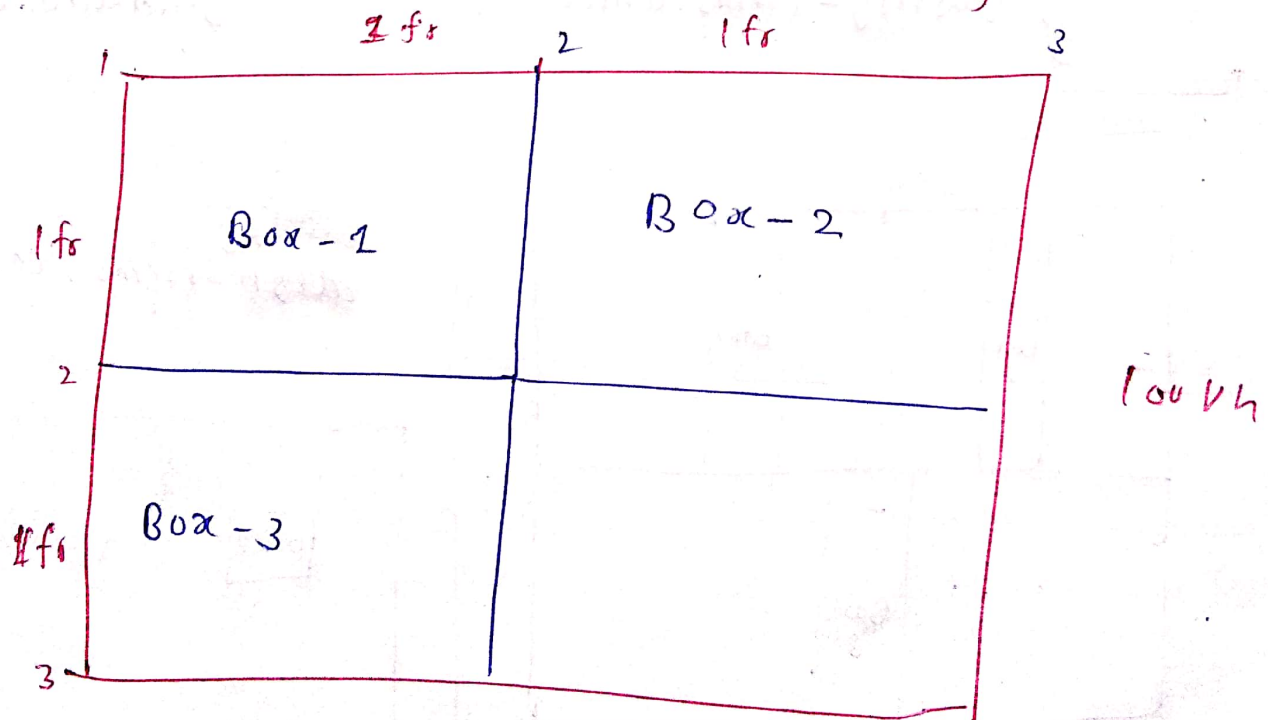 1 fr 1 fr
1 2 3
1 fr Box-1 Box-2
2
100 vh
1 fr Box-3
3